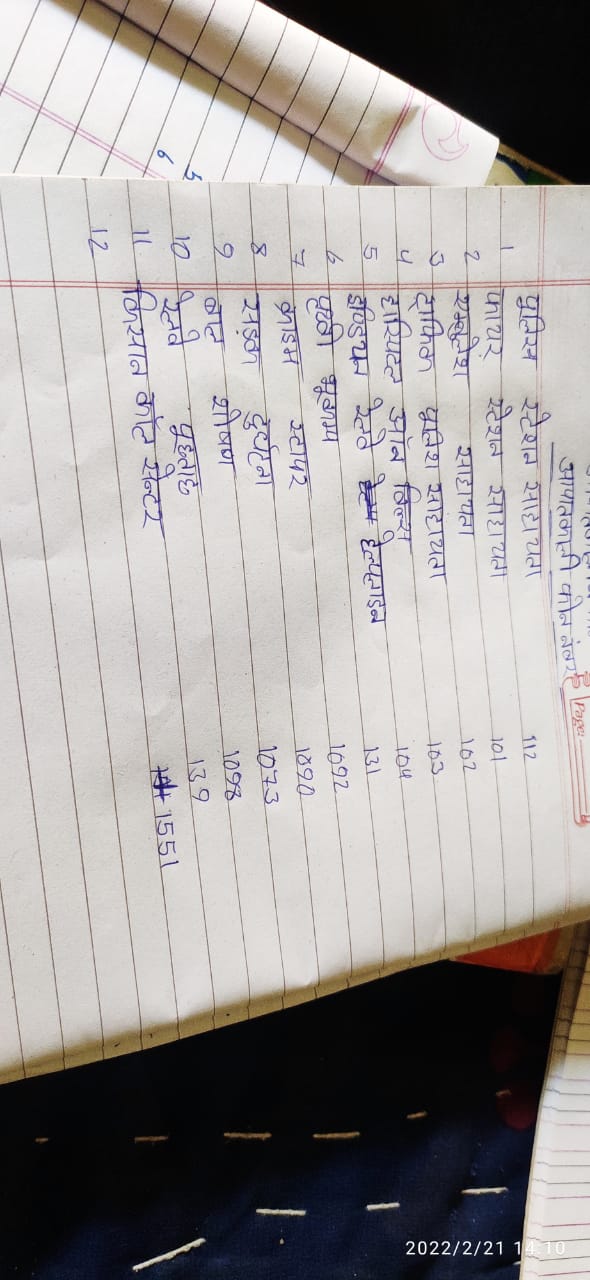 Page:
आपातकालीन फोन नंबर
पुलिस स्टेशन साहायता 112
1 फायर स्टेशन साहायता 101
2 एम्बुलेंश साहायता 102
3 ट्राफिक पुलिश साहायता 103
4 हास्पिटल ऑन व्हिल्स 104
5 इण्डियन रेल्वे हेल्पलाइन 131
6 पृथ्वी भूकम्प 1092
7 क्राइम स्टापर 1090
8 सड़क दुर्घटना 1073
9 बाल शोषण 1098
10 रेल्वे पुछताछ 139
11 किसान कॉल सेन्टर 1551
12
5
6
2022/2/21 14:10